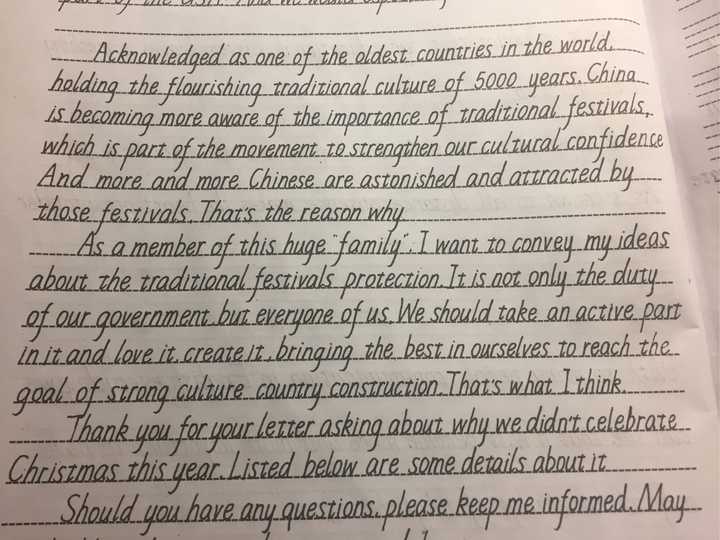 Acknowledged as one of the oldest countries in the world,
holding the flourishing traditional culture of 5000 years. China
is becoming more aware of the importance of traditional festivals,
which is part of the movement to strengthen our cultural confidence
And more and more Chinese are astonished and attracted by
those festivals. That's the reason why
As a member of this huge "family". I want to convey my ideas
about the traditional festivals protection. It is not only the duty
of our government but everyone of us. We should take an active part
in it and love it. create it, bringing the best in ourselves to reach the
goal of strong culture country construction. That's what I think.
Thank you for your letter asking about why we didn't celebrate
Christmas this year. Listed below are some details about it
Should you have any questions. please keep me informed. May